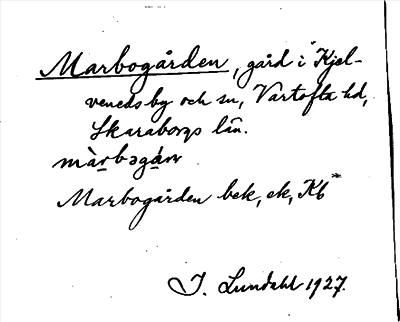 Marbogården, gård i Kjel-
veneds by och sn, Vartofta hd,
Skaraborgs län.
màrbɘgán
Marbogården bek, ek, Kb
I. Lundahl 1927.